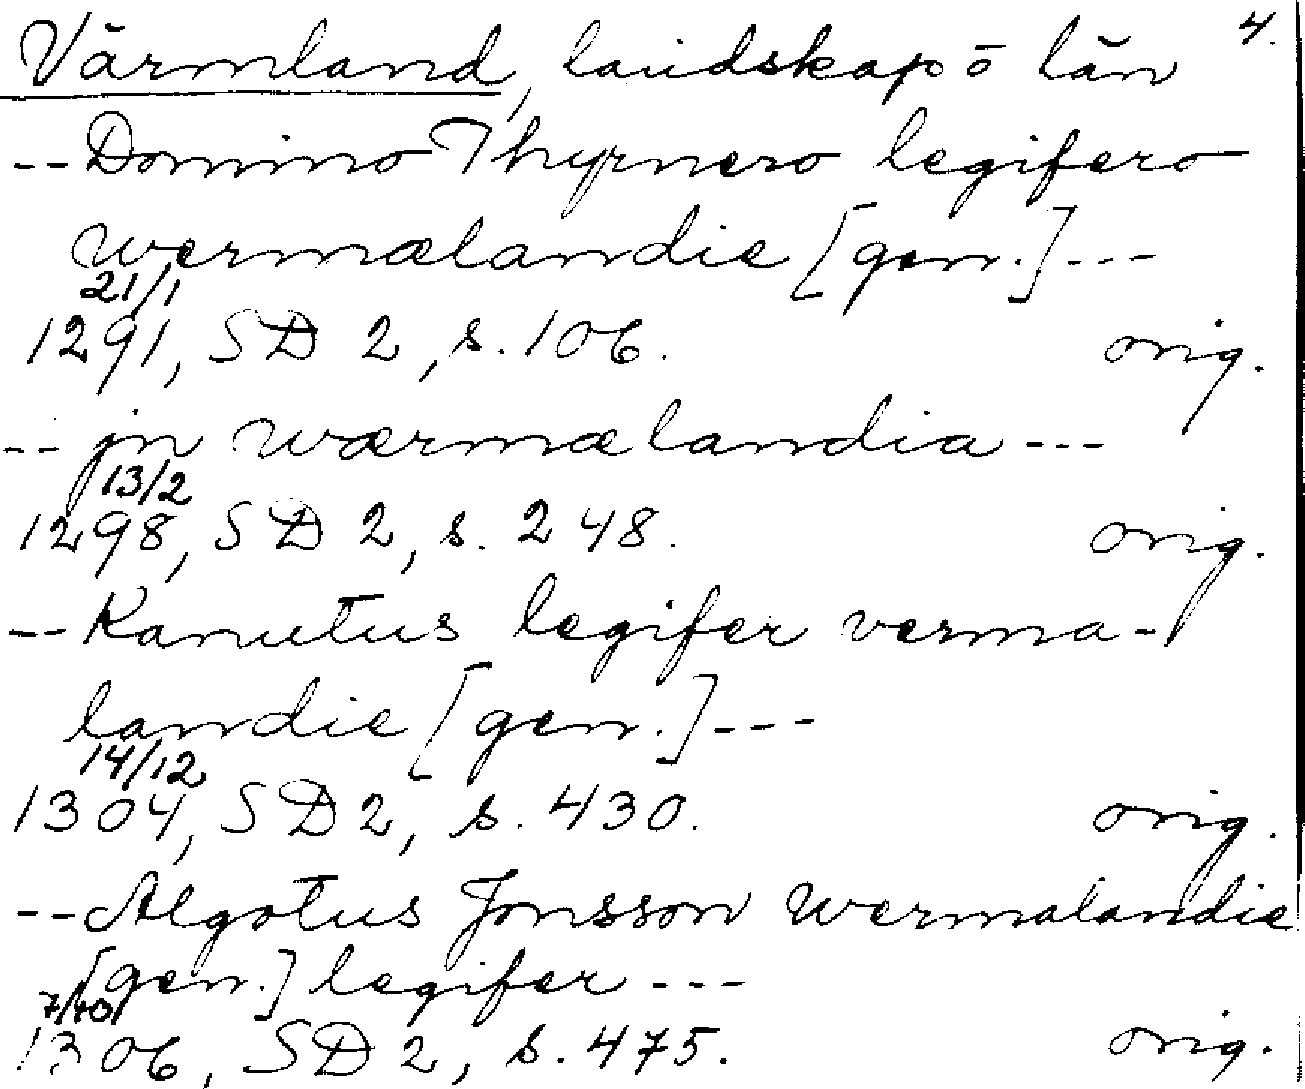 Värmland, landskap o län 4.
-- Domino Thyrnero legifero
wermælandie [gen.] ---
21/1
1291, SD 2, s. 106. orig.
-- jn wærmælandia ---
13/2
1298, SD 2, s. 248. orig.
-- Kanutus legifer verma-
landie [gen.] ---
14/12
1304, SD 2, s. 430. orig.
-- Algotus Jonsson wermalandie
[gen.] legifer ---
1306, SD 2, s. 475. orig.